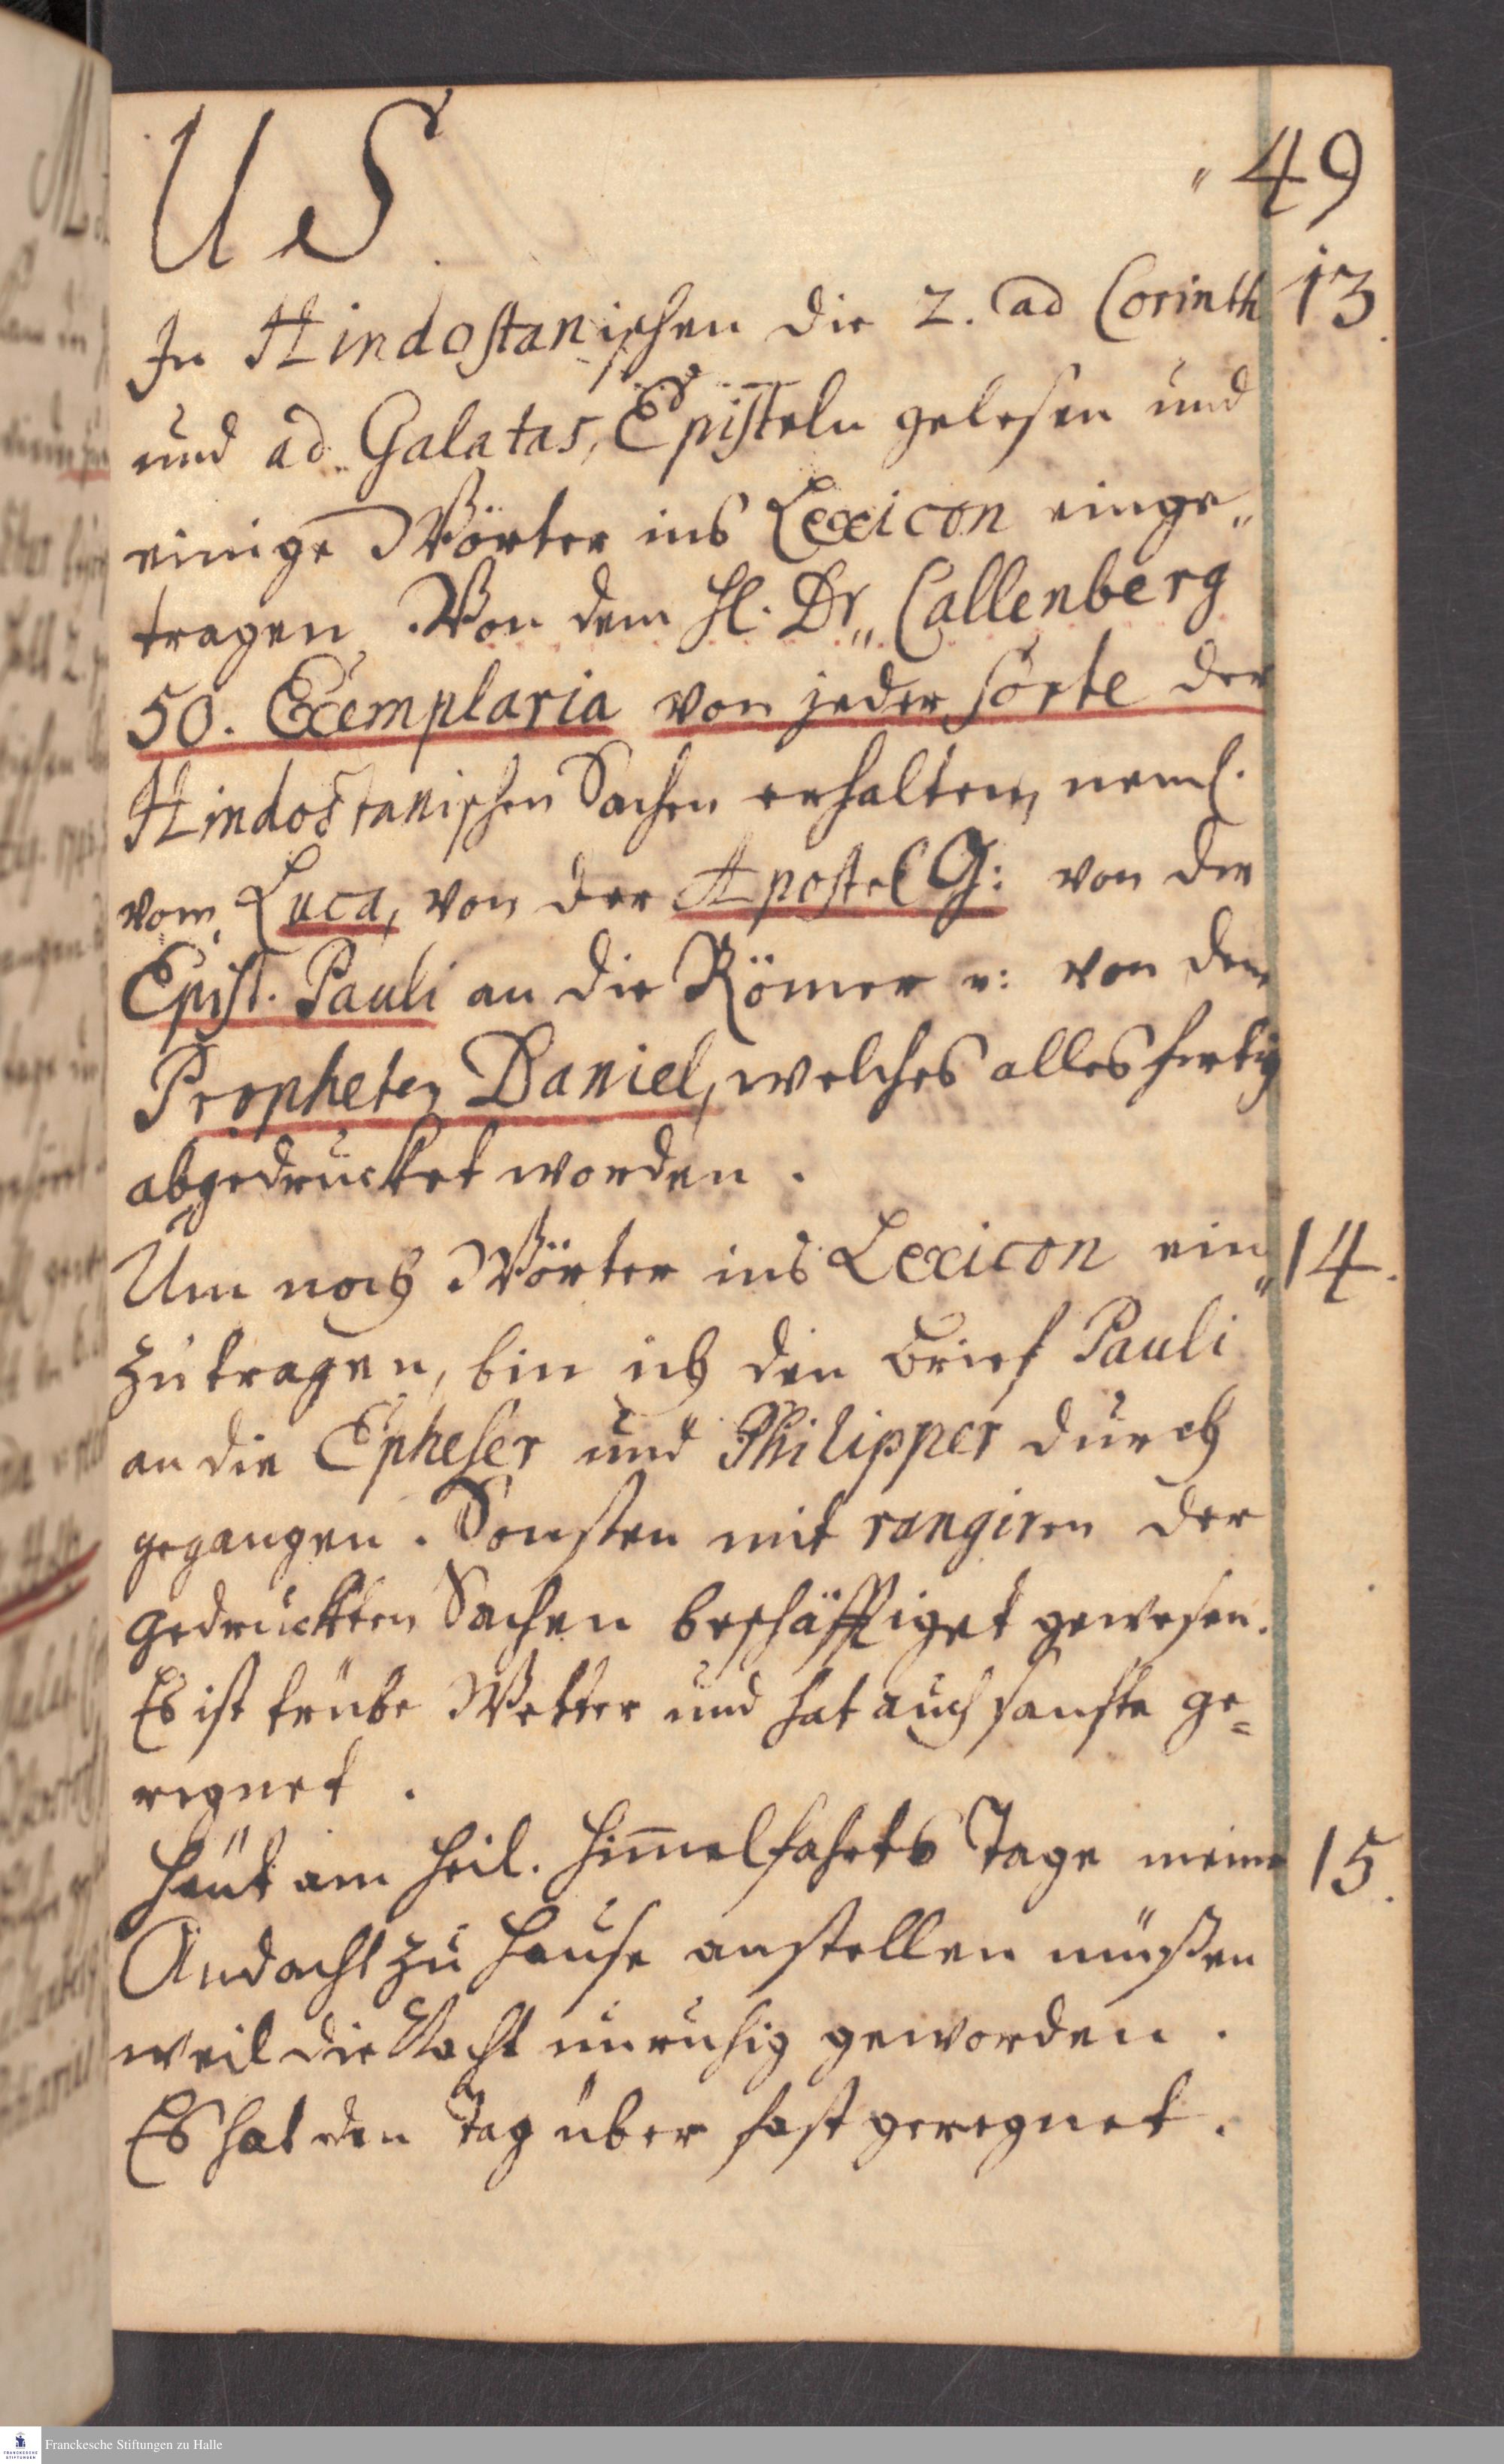 US
" 49
In Hindostanischen die 2. ad Corinth 13.
und ad Galatas, Episteln gelesen und
einige Wörter ins Lexicon einge„
tragen. Von dem H. Dr„ Callenberg
50. Exemplaria von jeder Sorte der
Hindostanischen Sachen erhalten, neml.
vom Luca, von der Apostel G: von der
Epist. Pauli an die Römer u: von dem
Propheten Daniel, welches alles fertig
abgedrucket worden.
Um noch Wörter ins Lexicon ein„ 14.
zutragen, bin ich den Brief Pauli
an die Epheser und Philipper durch
gegangen. Sonsten mit rangiren der
gedruckten Sachen beschäfftiget gewesen.
Es ist trübe Wetter und hat auch sanfte ge=
regnet.
Heut am Heil. Himelfahrts Tage meine 15.
Andacht zu Hause anstellen müßen
weil die Nacht unruhig geworden.
Es hat den Tag über fast geregnet.
Franckesche Stiftungen zu Halle